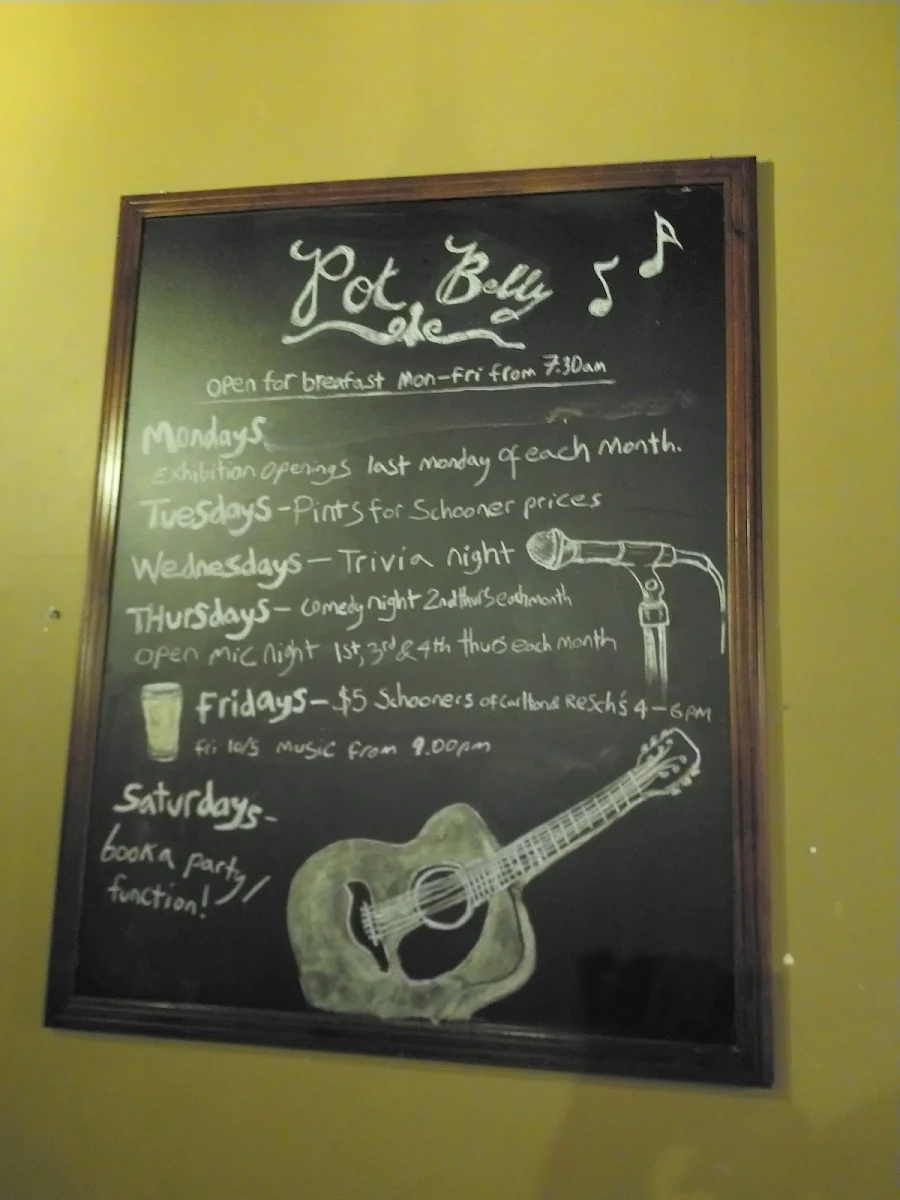 Pot Belly
open for breafast Mon-Fri from 7.30am
Mondays
Exhibition openings last monday of each month.
Tuesdays - Pints for Schooner prices
Wednesdays - Trivia night
THursdays - comedy night 2nd thurs each month
open mic night 1st, 3rd & 4th thurs each month
Fridays - $5 Schooners of Carlton & Resch's 4-6pm
fri 10/5 music from 9.00pm
Saturdays -
book a party/
function!